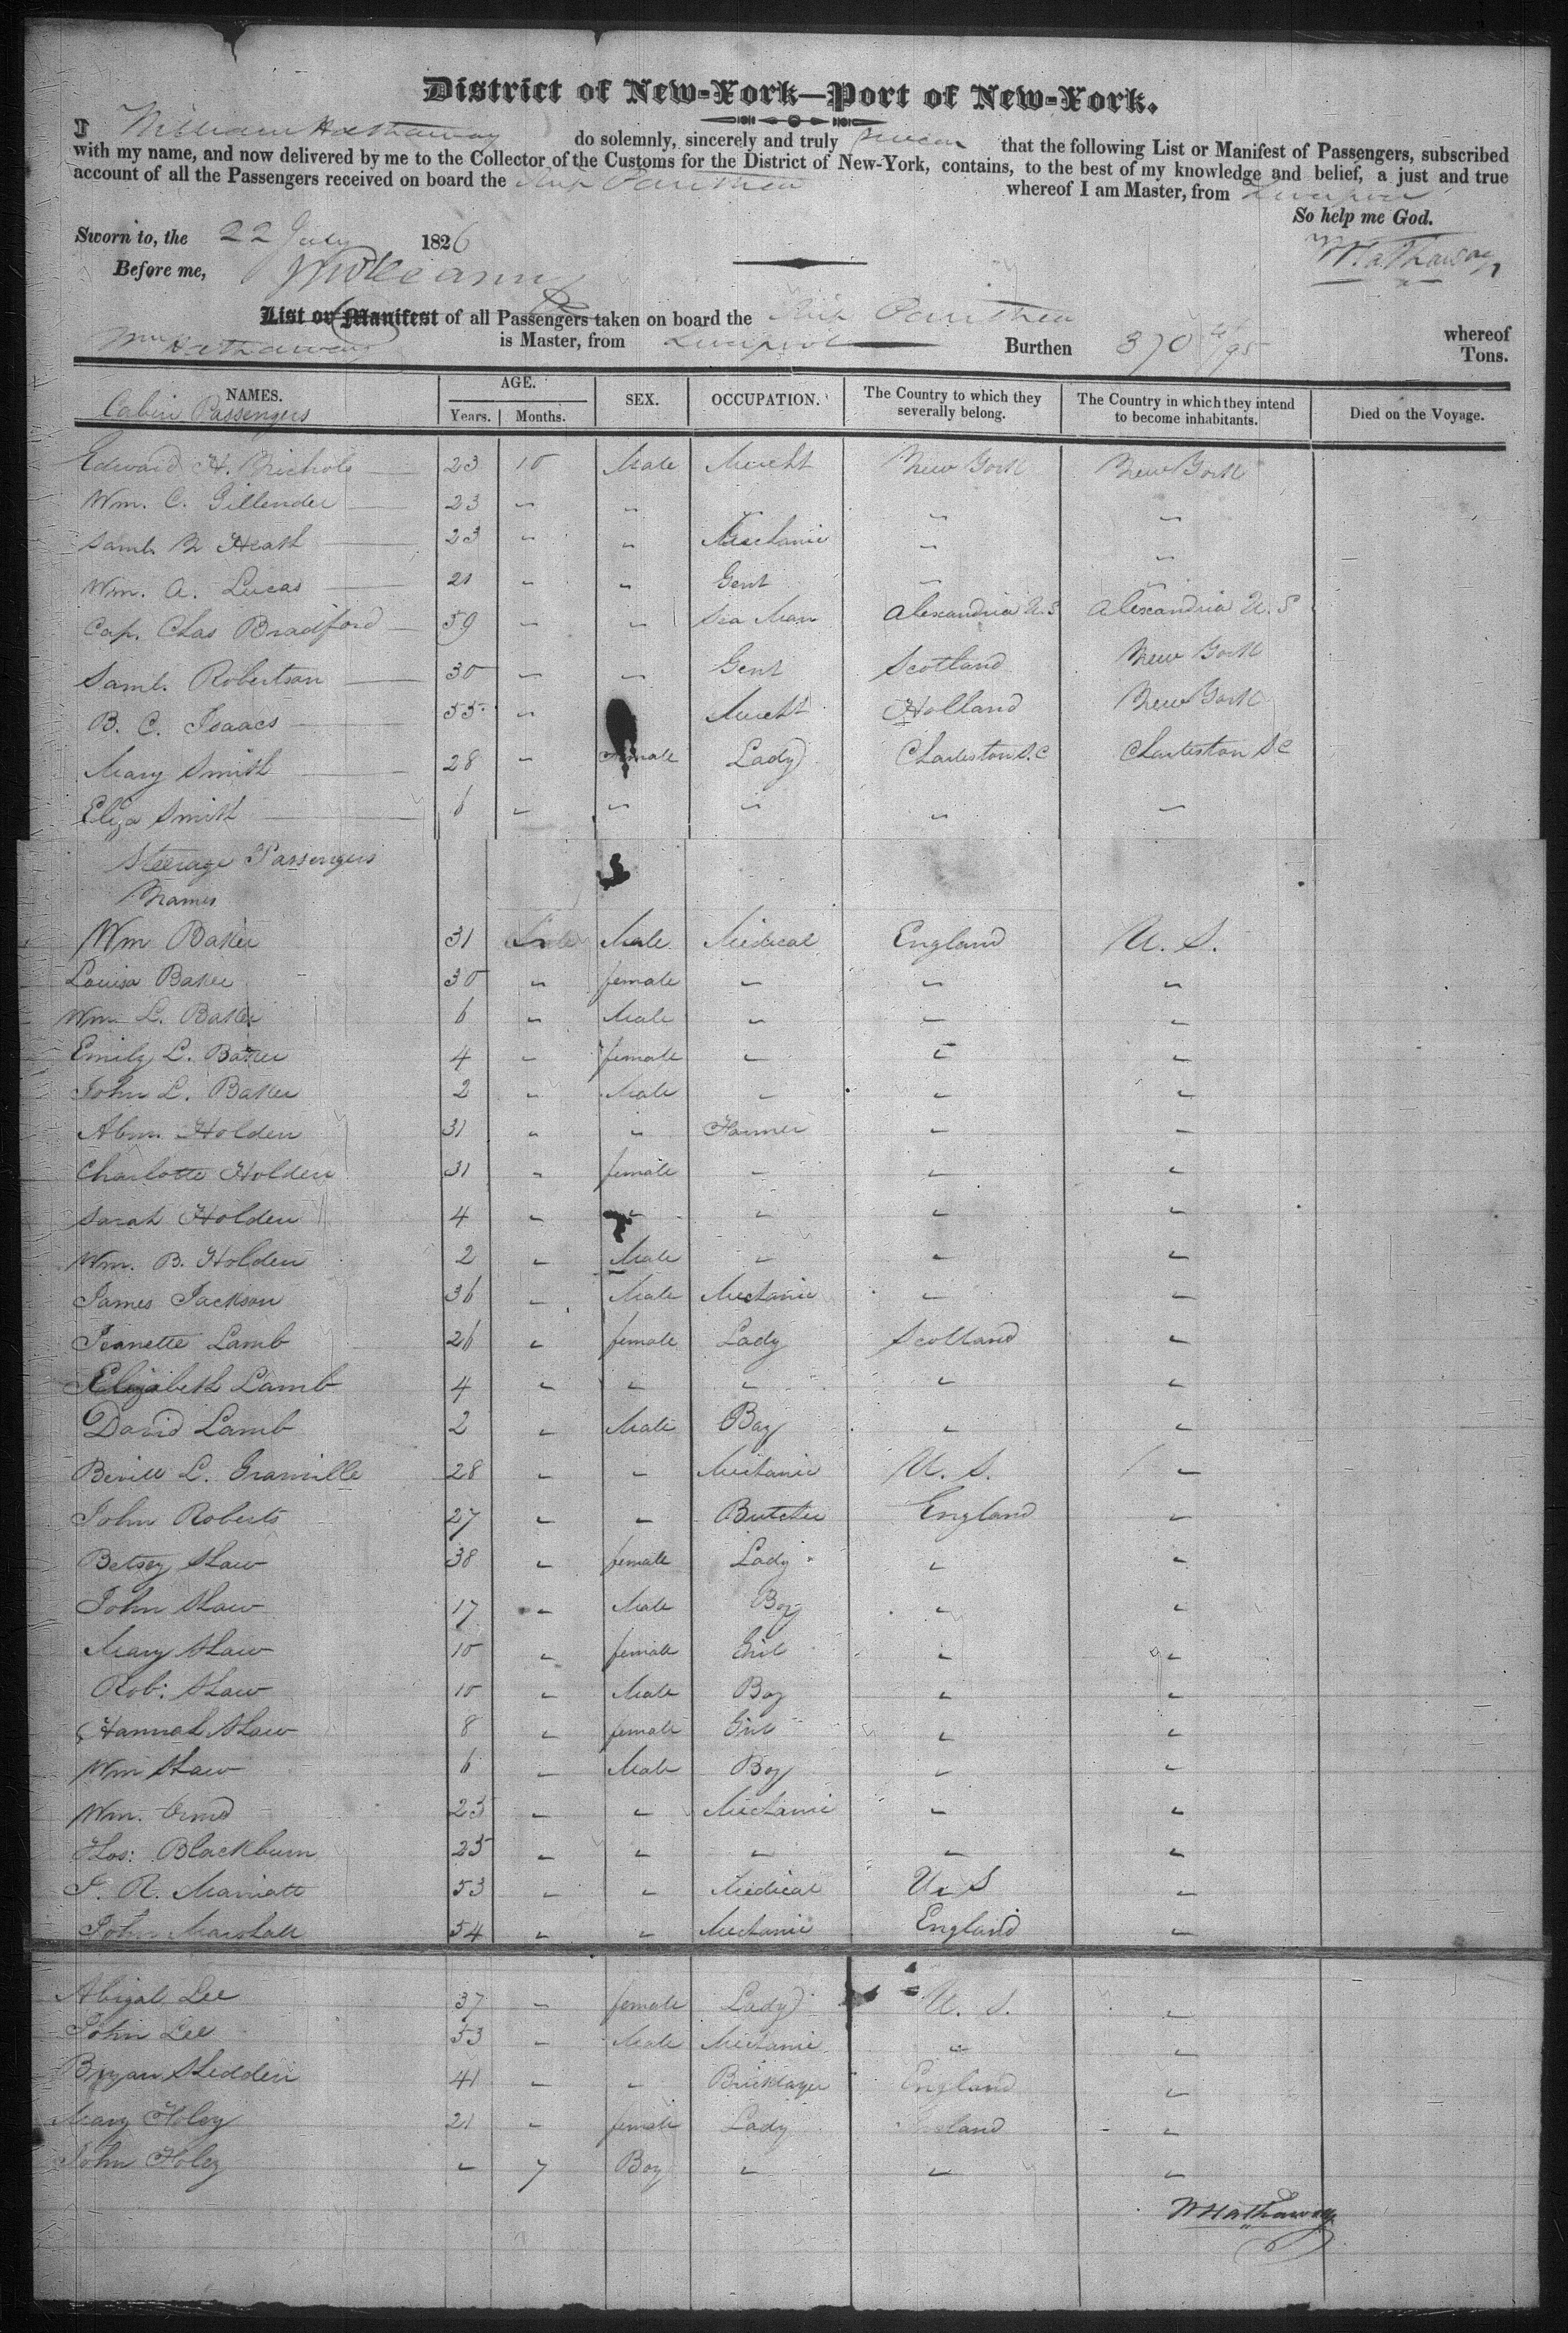 District of New-York—Port of New-York.
I William Hathaway do solemnly, sincerely and truly swear that the following List or Manifest of Passengers, subscribed
with my name, and now delivered by me to the Collector of the Customs for the District of New-York, contains, to the best of my knowledge and belief, a just and true
account of all the Passengers received on board the Ship Panthea whereof I am Master, from Liverpool
So help me God.
Sworn to, the 22 July 1826 WHathaway
Before me,
List or Manifest of all Passengers taken on board the Ship Panthea whereof
Wm Hathaway is Master, from Liverpool Burthen 370 /95 Tons.
NAMES. AGE. Years. Months. SEX. OCCUPATION. The Country to which they severally belong. The Country in which they intend to become inhabitants. Died on the Voyage.
Cabin Passengers
Edward H. Nichols 23 10 Male Mercht New York New York
Wm. C. Gillender 23 " " " " "
Saml. B Heath 23 " " Mechanic " "
Wm. A. Lucas 21 " " Gent " "
Cap. Chas Bradford 59 " " Sea Man Alexandria U.S Alexandria U.S
Saml. Robertson 30 " " Gent Scotland New York
B. C. Isaacs 55 " Mercht Holland New York
Mary Smith 28 " Female Lady Charleston S.C Charleston S C
Eliza Smith 6 " " " " "
Steerage Passengers
Names
Wm Baker 31 Male Medical England U. S.
Louisa Baker 30 " female " " "
Wm L. Baker 6 " Male " " "
Emily L. Baker 4 " female " " "
John L. Baker 2 " Male " " "
Abm. Holden 31 " " Farmer " "
Charlotte Holden 31 " female " " "
Sarah Holden 4 " " " " "
Wm. B. Holden 2 " Male " " "
James Jackson 36 " Male Mechanic " "
Jeanette Lamb 26 " female Lady Scotland "
Elizabeth Lamb 4 " " " " "
David Lamb 2 " Male Boy " "
Bevill L. Granville 28 " " Mechanic U. S. "
John Roberts 27 " " Butcher England "
Betsey Shaw 38 " female Lady " "
John Shaw 17 " Male Boy " "
Mary Shaw 10 " female Girl " "
Rob: Shaw 10 " Male Boy " "
Hannah Shaw 8 " female Girl " "
Wm Shaw 6 " Male Boy " "
Wm. Ormd 25 " " Mechanic " "
Thos: Blackburn 25 " " " " "
J. R. Marriatt 53 " " Medical U. S "
John Marshall 54 " " Mechanic England "
Abigal Lee 37 " female Lady U. S. "
John Lee 53 " Male Mechanic " "
Bryan Shedden 41 " " Bricklayer England "
Mary Foley 21 " female Lady "
John Foley " 7 Boy " " "
WHathaway